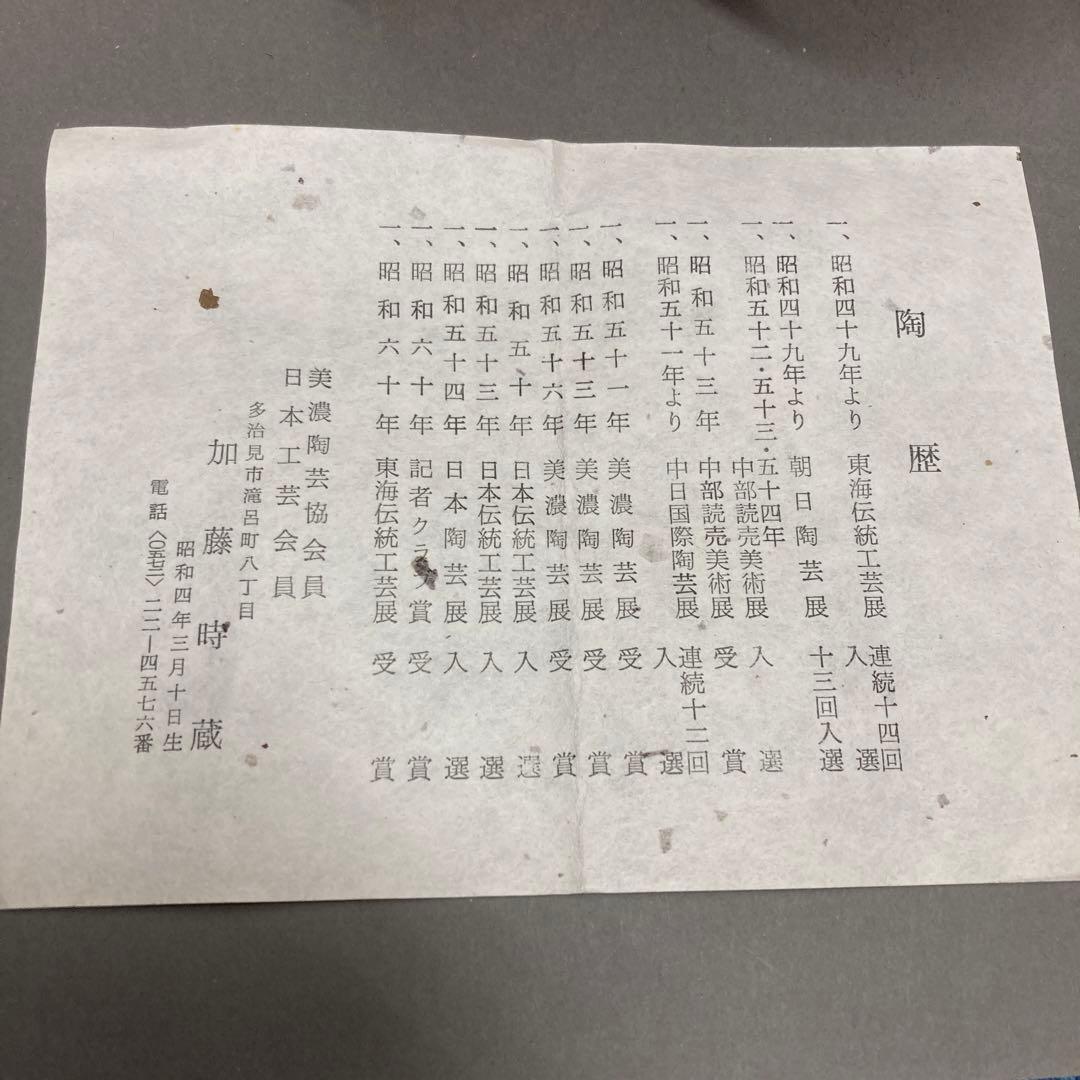 陶歴
一、昭和四十九年より 東海伝統工芸展 連続十四回入選
一、昭和四十九年より 朝日陶芸展 十三回入選
一、昭和五十二・五十三・五十四年 中部読売美術展 入選
一、昭和五十三年 中部読売美術展 受賞
一、昭和五十一年より 中日国際陶芸展 連続十二回入選
一、昭和五十一年 美濃陶芸展 受賞
一、昭和五十三年 美濃陶芸展 受賞
一、昭和五十六年 美濃陶芸展 受賞
一、昭和五十年 日本伝統工芸展 入選
一、昭和五十三年 日本伝統工芸展 入選
一、昭和五十四年 日本陶芸展 入選
一、昭和六十年 記者クラブ賞 受賞
一、昭和六十年 東海伝統工芸展 受賞
美濃陶芸協会員
日本工芸会員
多治見市滝呂町八丁目
加藤時蔵
昭和四年三月十日生
電話〈〇五七二〉二二―四五七六番